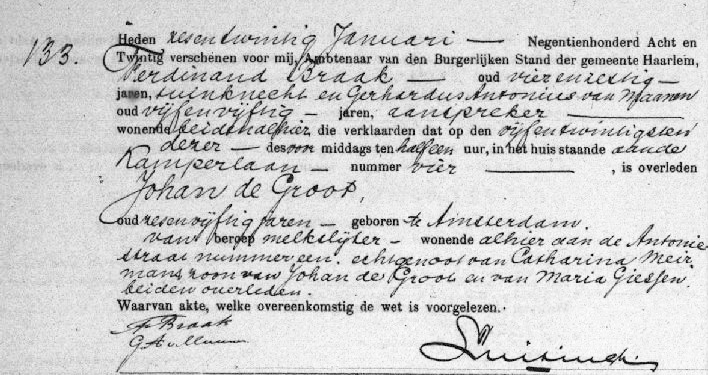 133.
Heden zesentwintig Januari — Negentienhonderd Acht en
Twintig verschenen voor mij, Ambtenaar van den Burgerlijken Stand der gemeente Haarlem,
Ferdinand Braak — oud vierenzestig —
jaren, tuinknecht en Gerhardus Antonius van Maanen
oud vijfenvijftig — jaren, aanspreker —
wonende beiden alhier, die verklaarden dat op den vijfentwintigsten
dezer — des voor middags ten half een uur, in het huis staande aan de
Kamperlaan — nummer vier —, is overleden
Johan de Groot,
oud zesenvijftig jaren — geboren te Amsterdam.
van beroep melkslijter — wonende alhier aan de Antonie
straat nummer een. echtgenoot van Catharina Meir
mans, zoon van Johan de Groot en van Maria Giessen.
beiden overleden.
Waarvan akte, welke overeenkomstig de wet is voorgelezen.
F Braak